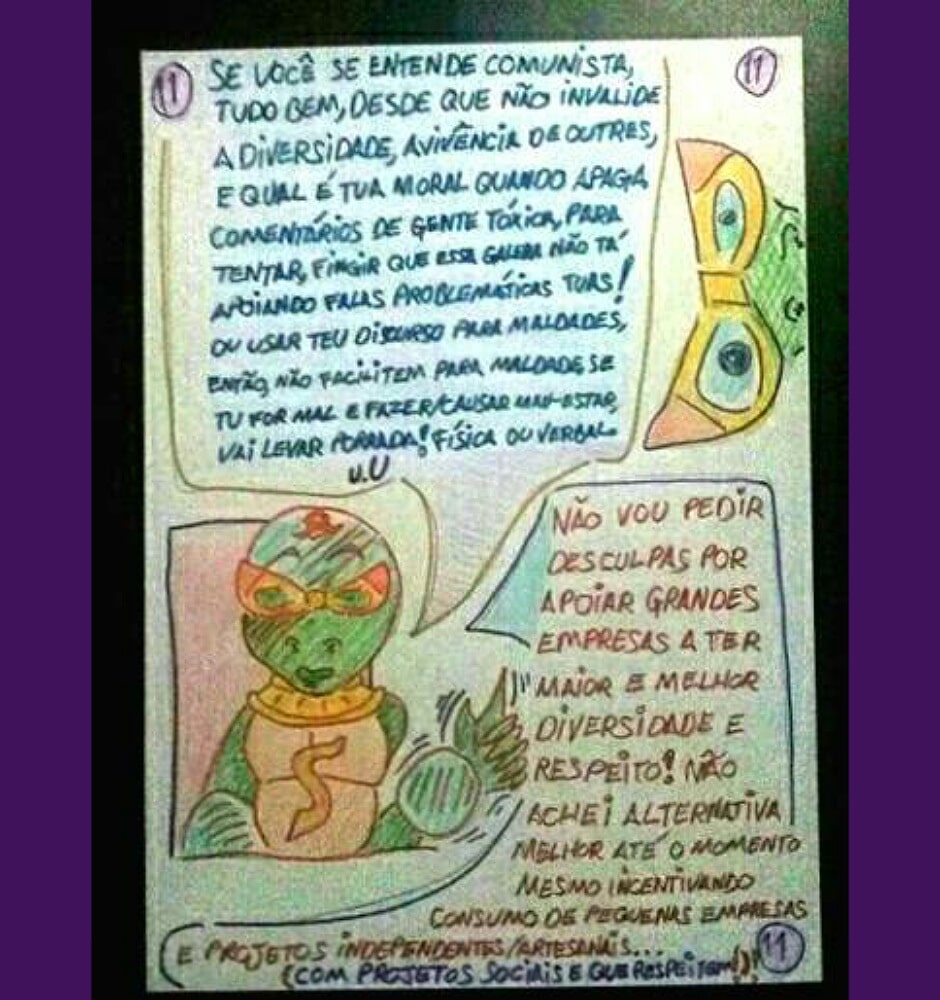 11 11
SE VOCÊ SE ENTENDE COMUNISTA,
TUDO BEM, DESDE QUE NÃO INVALIDE
A DIVERSIDADE, A VIVÊNCIA DE OUTRES,
E QUAL É TUA MORAL QUANDO APAGA
COMENTÁRIOS DE GENTE TÓXICA, PARA
TENTAR, FINGIR QUE ESSA GALERA NÃO TÁ
APOIANDO FALAS PROBLEMÁTICAS TUAS!
OU USAR TEU DISCURSO PARA MALDADES,
ENTÃO, NÃO FACILITEM PARA MALDADE SE
TU FOR MAL E FAZER/CAUSAR MAU-ESTAR,
VAI LEVAR PORRADA! FÍSICA OU VERBAL.
U.U
NÃO VOU PEDIR
DESCULPAS POR
APOIAR GRANDES
EMPRESAS A TER
MAIOR E MELHOR
DIVERSIDADE E
RESPEITO! NÃO
ACHEI ALTERNATIVA
MELHOR ATÉ O MOMENTO
MESMO INCENTIVANDO
CONSUMO DE PEQUENAS EMPRESAS
E PROJETOS INDEPENDENTES/ARTESANAIS...
(COM PROJETOS SOCIAIS E QUE RESPEITEM!)!
11
S